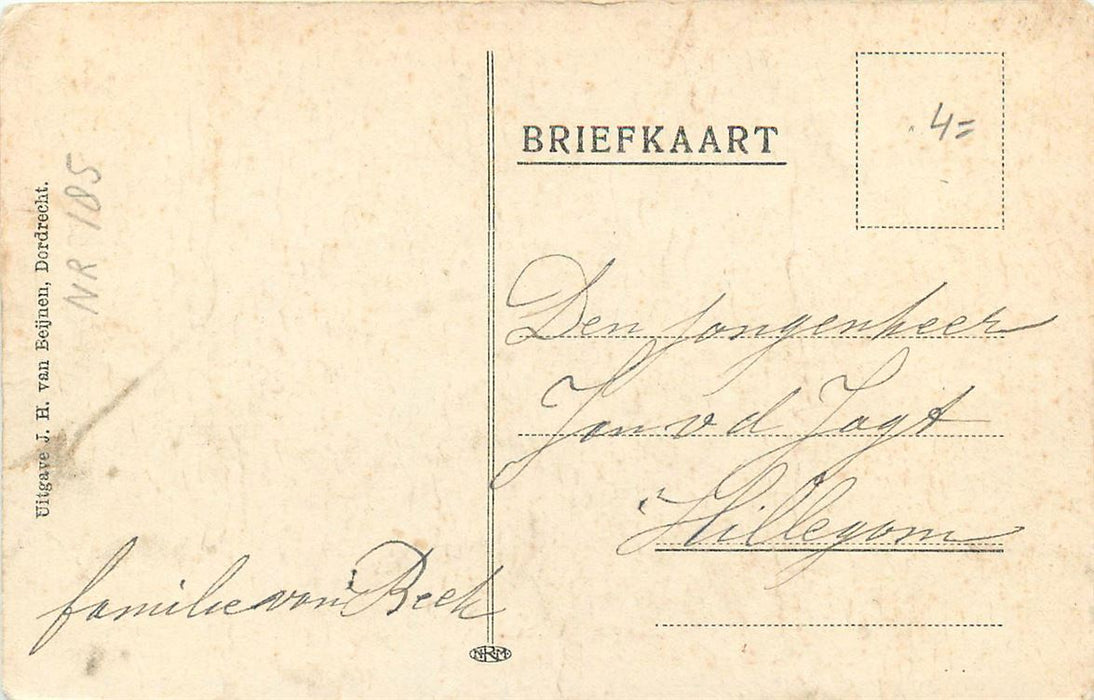 Uitgave J. H. van Beijnen, Dordrecht.
NR 185
familie van Beek
BRIEFKAART
4=
Den jongenheer
Jan v d Jagt
Hillegom
NRM